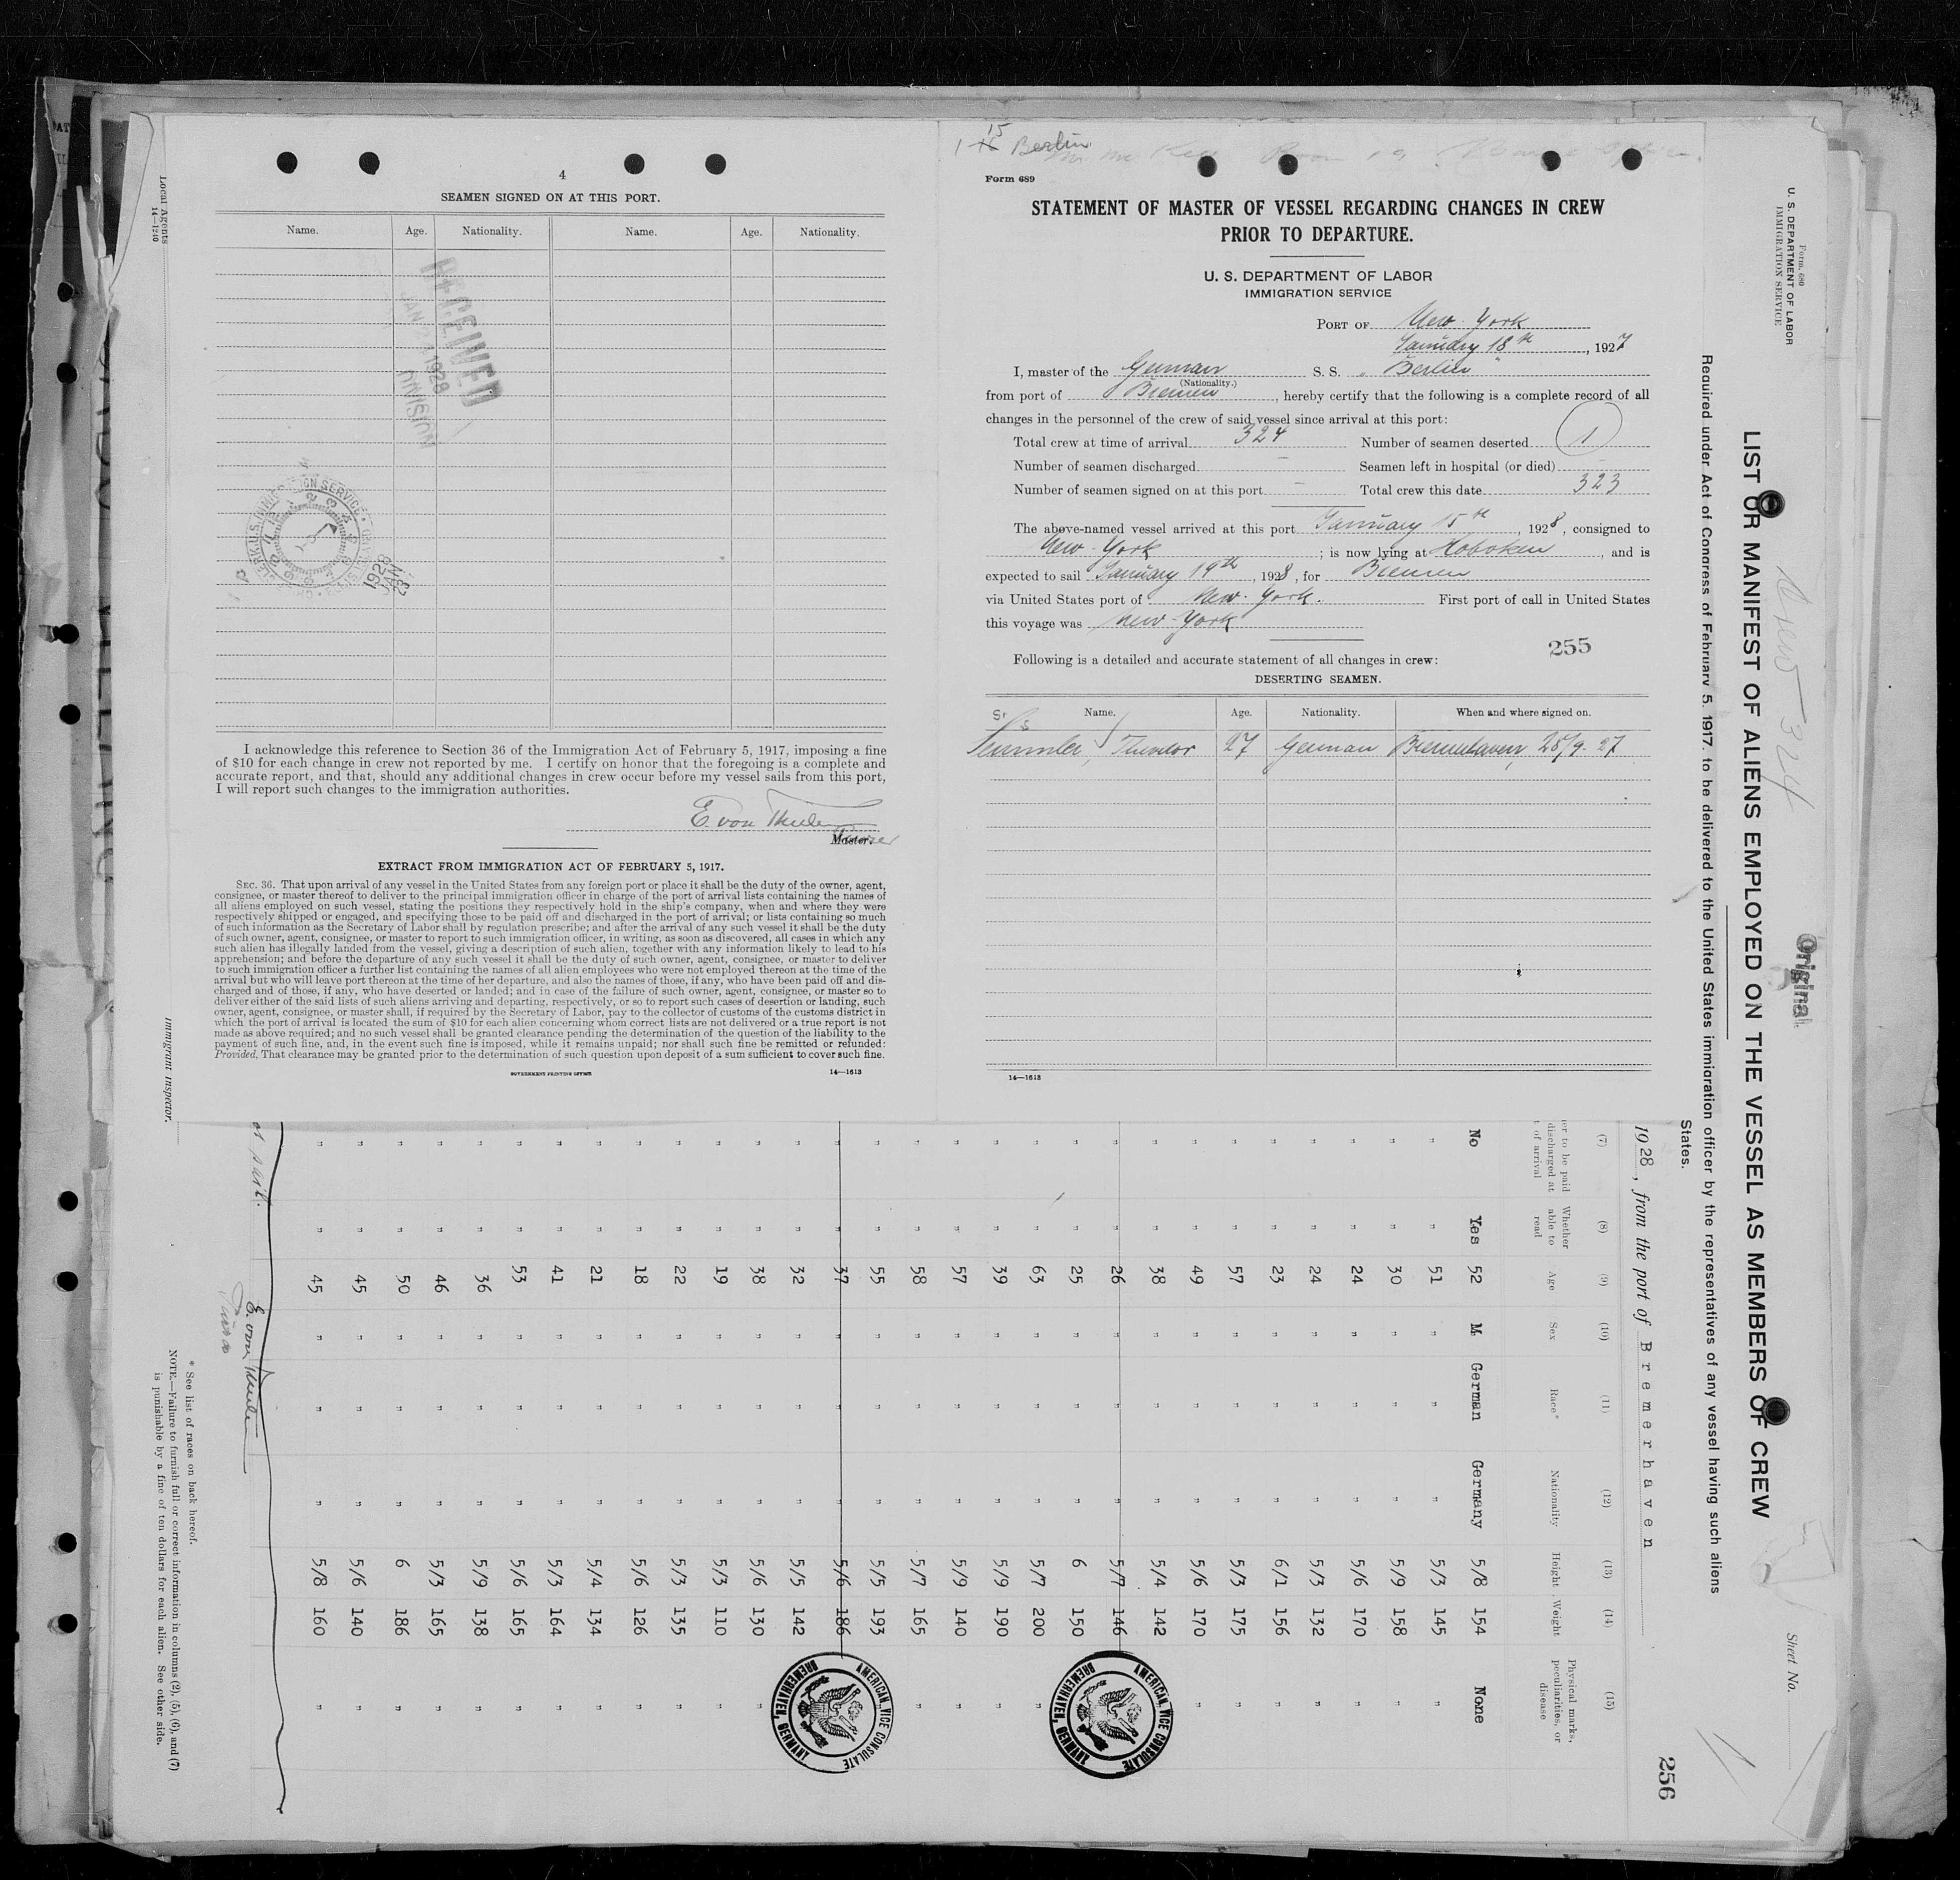 4
SEAMEN SIGNED ON AT THIS PORT.
Name. Age. Nationality. Name. Age. Nationality.
RECEIVED
JAN 24 1928
DIVISION
1928
JAN
23
I acknowledge this reference to Section 36 of the Immigration Act of February 5, 1917, imposing a fine
of $10 for each change in crew not reported by me. I certify on honor that the foregoing is a complete and
accurate report, and that, should any additional changes in crew occur before my vessel sails from this port,
I will report such changes to the immigration authorities.
E. von Thuelen
Master. Purser
EXTRACT FROM IMMIGRATION ACT OF FEBRUARY 5, 1917.
SEC. 36. That upon arrival of any vessel in the United States from any foreign port or place it shall be the duty of the owner, agent,
consignee, or master thereof to deliver to the principal immigration officer in charge of the port of arrival lists containing the names of
all aliens employed on such vessel, stating the positions they respectively hold in the ship's company, when and where they were
respectively shipped or engaged, and specifying those to be paid off and discharged in the port of arrival; or lists containing so much
of such information as the Secretary of Labor shall by regulation prescribe; and after the arrival of any such vessel it shall be the duty
of such owner, agent, consignee, or master to report to such immigration officer, in writing, as soon as discovered, all cases in which any
such alien has illegally landed from the vessel, giving a description of such alien, together with any information likely to lead to his
apprehension; and before the departure of any such vessel it shall be the duty of such owner, agent, consignee, or master to deliver
to such immigration officer a further list containing the names of all alien employees who were not employed thereon at the time of the
arrival but who will leave port thereon at the time of her departure, and also the names of those, if any, who have been paid off and dis-
charged and of those, if any, who have deserted or landed; and in case of the failure of such owner, agent, consignee, or master so to
deliver either of the said lists of such aliens arriving and departing, respectively, or so to report such cases of desertion or landing, such
owner, agent, consignee, or master shall, if required by the Secretary of Labor, pay to the collector of customs of the customs district in
which the port of arrival is located the sum of $10 for each alien concerning whom correct lists are not delivered or a true report is not
made as above required; and no such vessel shall be granted clearance pending the determination of the question of the liability to the
payment of such fine, and, in the event such fine is imposed, while it remains unpaid; nor shall such fine be remitted or refunded:
Provided, That clearance may be granted prior to the determination of such question upon deposit of a sum sufficient to cover such fine.
GOVERNMENT PRINTING OFFICE 14—1613
Local Agents
14—1240
Immigrant Inspector.
15
Berlin
Form 689
STATEMENT OF MASTER OF VESSEL REGARDING CHANGES IN CREW
PRIOR TO DEPARTURE.
U. S. DEPARTMENT OF LABOR
IMMIGRATION SERVICE
PORT OF New-York
January 18th, 1927
I, master of the German S. S. "Berlin"
(Nationality.)
from port of Bremen, hereby certify that the following is a complete record of all
changes in the personnel of the crew of said vessel since arrival at this port:
Total crew at time of arrival 324 Number of seamen deserted 1
Number of seamen discharged — Seamen left in hospital (or died) —
Number of seamen signed on at this port — Total crew this date 323
The above-named vessel arrived at this port January 15th, 1928, consigned to
New-York; is now lying at Hoboken, and is
expected to sail January 19th, 1928, for Bremen
via United States port of New-York. First port of call in United States
this voyage was New-York
255
Following is a detailed and accurate statement of all changes in crew:
DESERTING SEAMEN.
Name. Age. Nationality. When and where signed on.
Theodor 27 German Bremerhaven, 28/9. 27
14—1613
Form 680
U. S. DEPARTMENT OF LABOR
IMMIGRATION SERVICE
Crew 324
Original
Sheet No.
LIST OR MANIFEST OF ALIENS EMPLOYED ON THE VESSEL AS MEMBERS OF CREW
Required under Act of Congress of February 5, 1917, to be delivered to the United States immigration officer by the representatives of any vessel having such aliens
States.
256
1928, from the port of Bremerhaven
(7) (8) (9) (10) (11) (12) (13) (14) (15)
er to be paid discharged at of arrival Whether able to read Age Sex Race* Nationality Height Weight Physical marks, peculiarities, or disease
No Yes 52 M. German Germany 5/8 154 None
" " 51 " " " 5/3 145 "
" " 30 " " " 5/9 158 "
" " 24 " " " 5/6 170 "
" " 24 " " " 5/3 132 "
" " 23 " " " 6/1 156 "
" " 57 " " " 5/3 175 "
" " 49 " " " 5/6 170 "
" " 38 " " " 5/4 142
" " 26 " " " 5/7 146
" " 25 " " " 6 150
" " 63 " " " 5/7 200 "
" " 39 " " " 5/9 190 "
" " 57 " " " 5/9 140 "
" " 58 " " " 5/7 165 "
" " 55 " " " 5/5 193
" " 37 " " " 5/6 186
" " 32 " " " 5/5 142
" " 38 " " " 5/6 130 "
" " 19 " " " 5/3 110 "
" " 22 " " " 5/3 135 "
" " 18 " " " 5/6 126 "
" " 21 " " " 5/4 134 "
" " 41 " " " 5/3 164 "
" " 53 " " " 5/6 165 "
" " 36 " " " 5/9 138 "
" " 46 " " " 5/3 165 "
" " 50 " " " 6 186 "
" " 45 " " " 5/6 140 "
" " 45 " " " 5/8 160 "
AMERICAN VICE CONSULATE
BREMERHAVEN, GERMANY
AMERICAN VICE CONSULATE
BREMERHAVEN, GERMANY
E. von Thuelen
Purser
* See list of races on back hereof.
NOTE.—Failure to furnish full or correct information in columns (2), (5), (6), and (7)
is punishable by a fine of ten dollars for each alien. See other side.